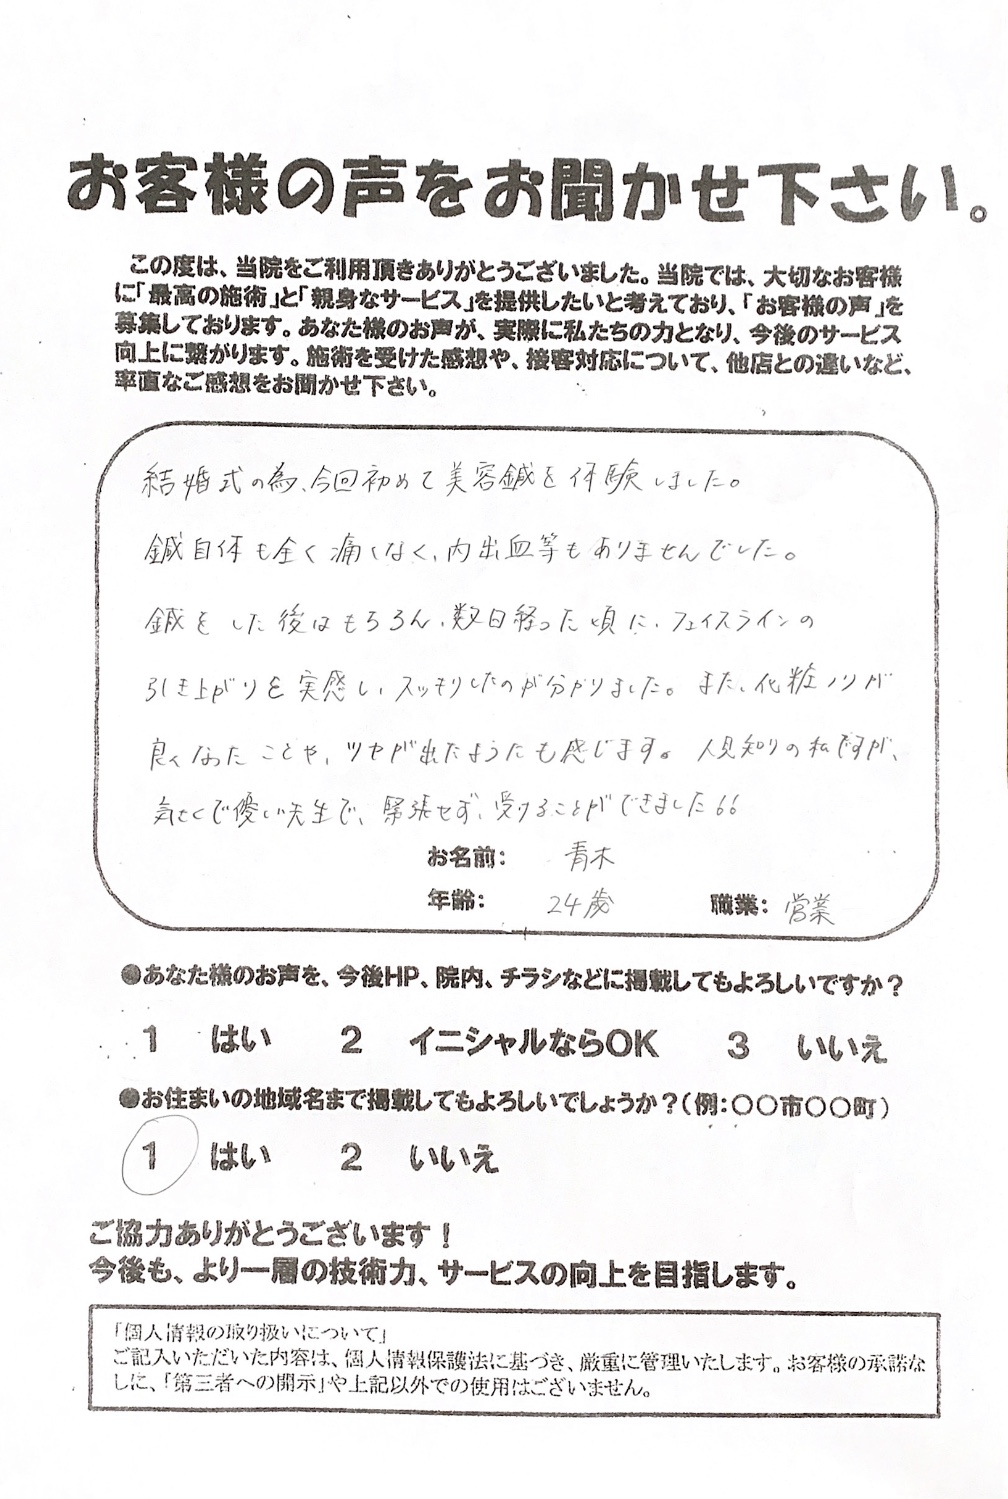 お客様の声をお聞かせ下さい。
この度は、当院をご利用頂きありがとうございました。当院では、大切なお客様
に「最高の施術」と「親身なサービス」を提供したいと考えており、「お客様の声」を
募集しております。あなた様のお声が、実際に私たちの力となり、今後のサービス
向上に繋がります。施術を受けた感想や、接客対応について、他店との違いなど、
率直なご感想をお聞かせ下さい。
結婚式の為、今回初めて美容鍼を体験しました。
鍼自体も全く痛くなく、内出血等もありませんでした。
鍼をした後はもちろん、数日経った頃に、フェイスラインの
引き上がりを実感し、スッキリしたのが分かりました。また、化粧ノリが
良くなったことや、ツヤが出たようにも感じます。人見知りの私ですが、
気さくで優しい先生で、緊張せず、受けることができました
お名前： 青木
年齢： 24歳 職業： 営業
●あなた様のお声を、今後HP、院内、チラシなどに掲載してもよろしいですか？
1 はい 2 イニシャルならOK 3 いいえ
●お住まいの地域名まで掲載してもよろしいでしょうか？（例：○○市○○町）
1 はい 2 いいえ
ご協力ありがとうございます！
今後も、より一層の技術力、サービスの向上を目指します。
「個人情報の取り扱いについて」
ご記入いただいた内容は、個人情報保護法に基づき、厳重に管理いたします。お客様の承諾な
しに、「第三者への開示」や上記以外での使用はございません。